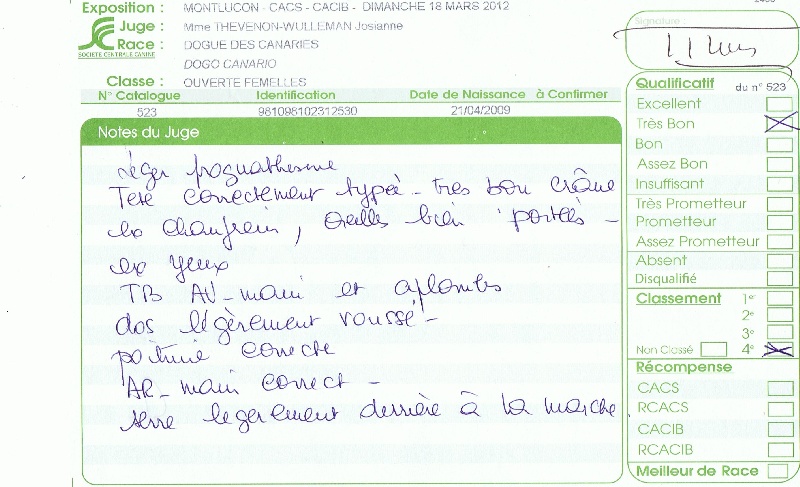 Exposition : MONTLUCON - CACS - CACIB - DIMANCHE 18 MARS 2012
Juge : Mme THEVENON-WULLEMAN Josianne
Race : DOGUE DES CANARIES
SOCIÉTÉ CENTRALE CANINE
DOGO CANARIO
Classe : OUVERTE FEMELLES
N° Catalogue Identification Date de Naissance à Confirmer
523 981098102312530 21/04/2009
Notes du Juge
Léger prognathisme
Tete correctement typée - très bon crâne
les chanfrein, oreilles bien portées -
les yeux
TB AV-main et aplombs
dos légèrement voussé -
poitrine correcte
AR-main correct -
serre légèrement derrière à la marche
Signature :
Qualificatif du n° 523
Excellent
Très Bon
Bon
Assez Bon
Insuffisant
Très Prometteur
Prometteur
Assez Prometteur
Absent
Disqualifié
Classement 1e
2e
3e
Non Classé 4e
Récompense
CACS
RCACS
CACIB
RCACIB
Meilleur de Race